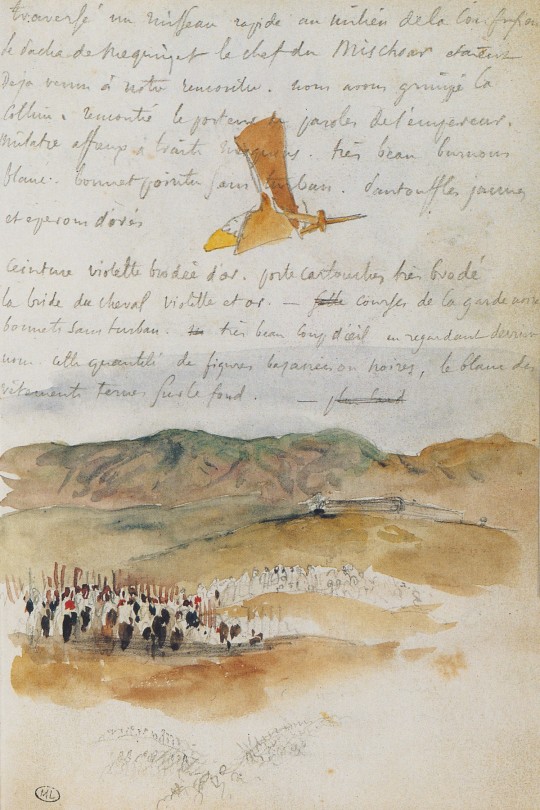 traversé un ruisseau rapide au milieu de la confusion
le Pacha de Mequinez et le chef du Mischoar etaient
Deja venus à notre rencontre. nous avons grimpé la
Colline. rencontré le porteur de paroles de l'empereur.
Mulatre affreux à traits mesquins. très beau burnous
blanc. bonnet pointu sans turban. Pantouffles jaunes
et eperons dorés
Ceinture violette brodée d'or. porte cartouches très brodé
la bride du cheval violette et or. — courses de la garde noire
bonnets sans turban. très beau coup d'œil en regardant derrière
nous. cette quantité de figures bazanées ou noires, le blanc des
vêtements ternes sur le fond. —
ML